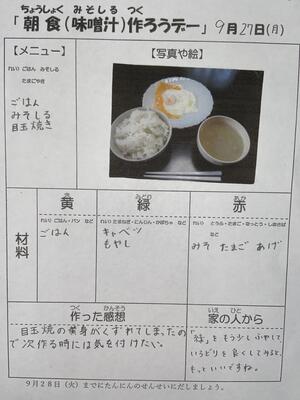 ちょうしょく みそしる つく
「朝食(味噌汁)作ろうデー」9月27日(月)
【メニュー】
れい)ごはん みそしる
たまごやき
ごはん
みそしる
目玉焼き
【写真や絵】
材料
き
黄
れい)ごはん・パン など
ごはん
みどり
緑
れい)たまねぎ・にんじん・かぼちゃ など
キャベツ
もやし
あか
赤
れい) とうふ・たまご・なっとう・しおさけ
など
みそ たまご あげ
つく かんそう
作った感想
目玉焼の黄身がくずれてしまったの
で次作る時には気を付けたい。
いえ ひと
家の人から
「緑」をもう少しふやして
いろどりを良くしてみると、
もっといいですね。
9月28日(火)までにたんにんのせんせいにだしましょう。